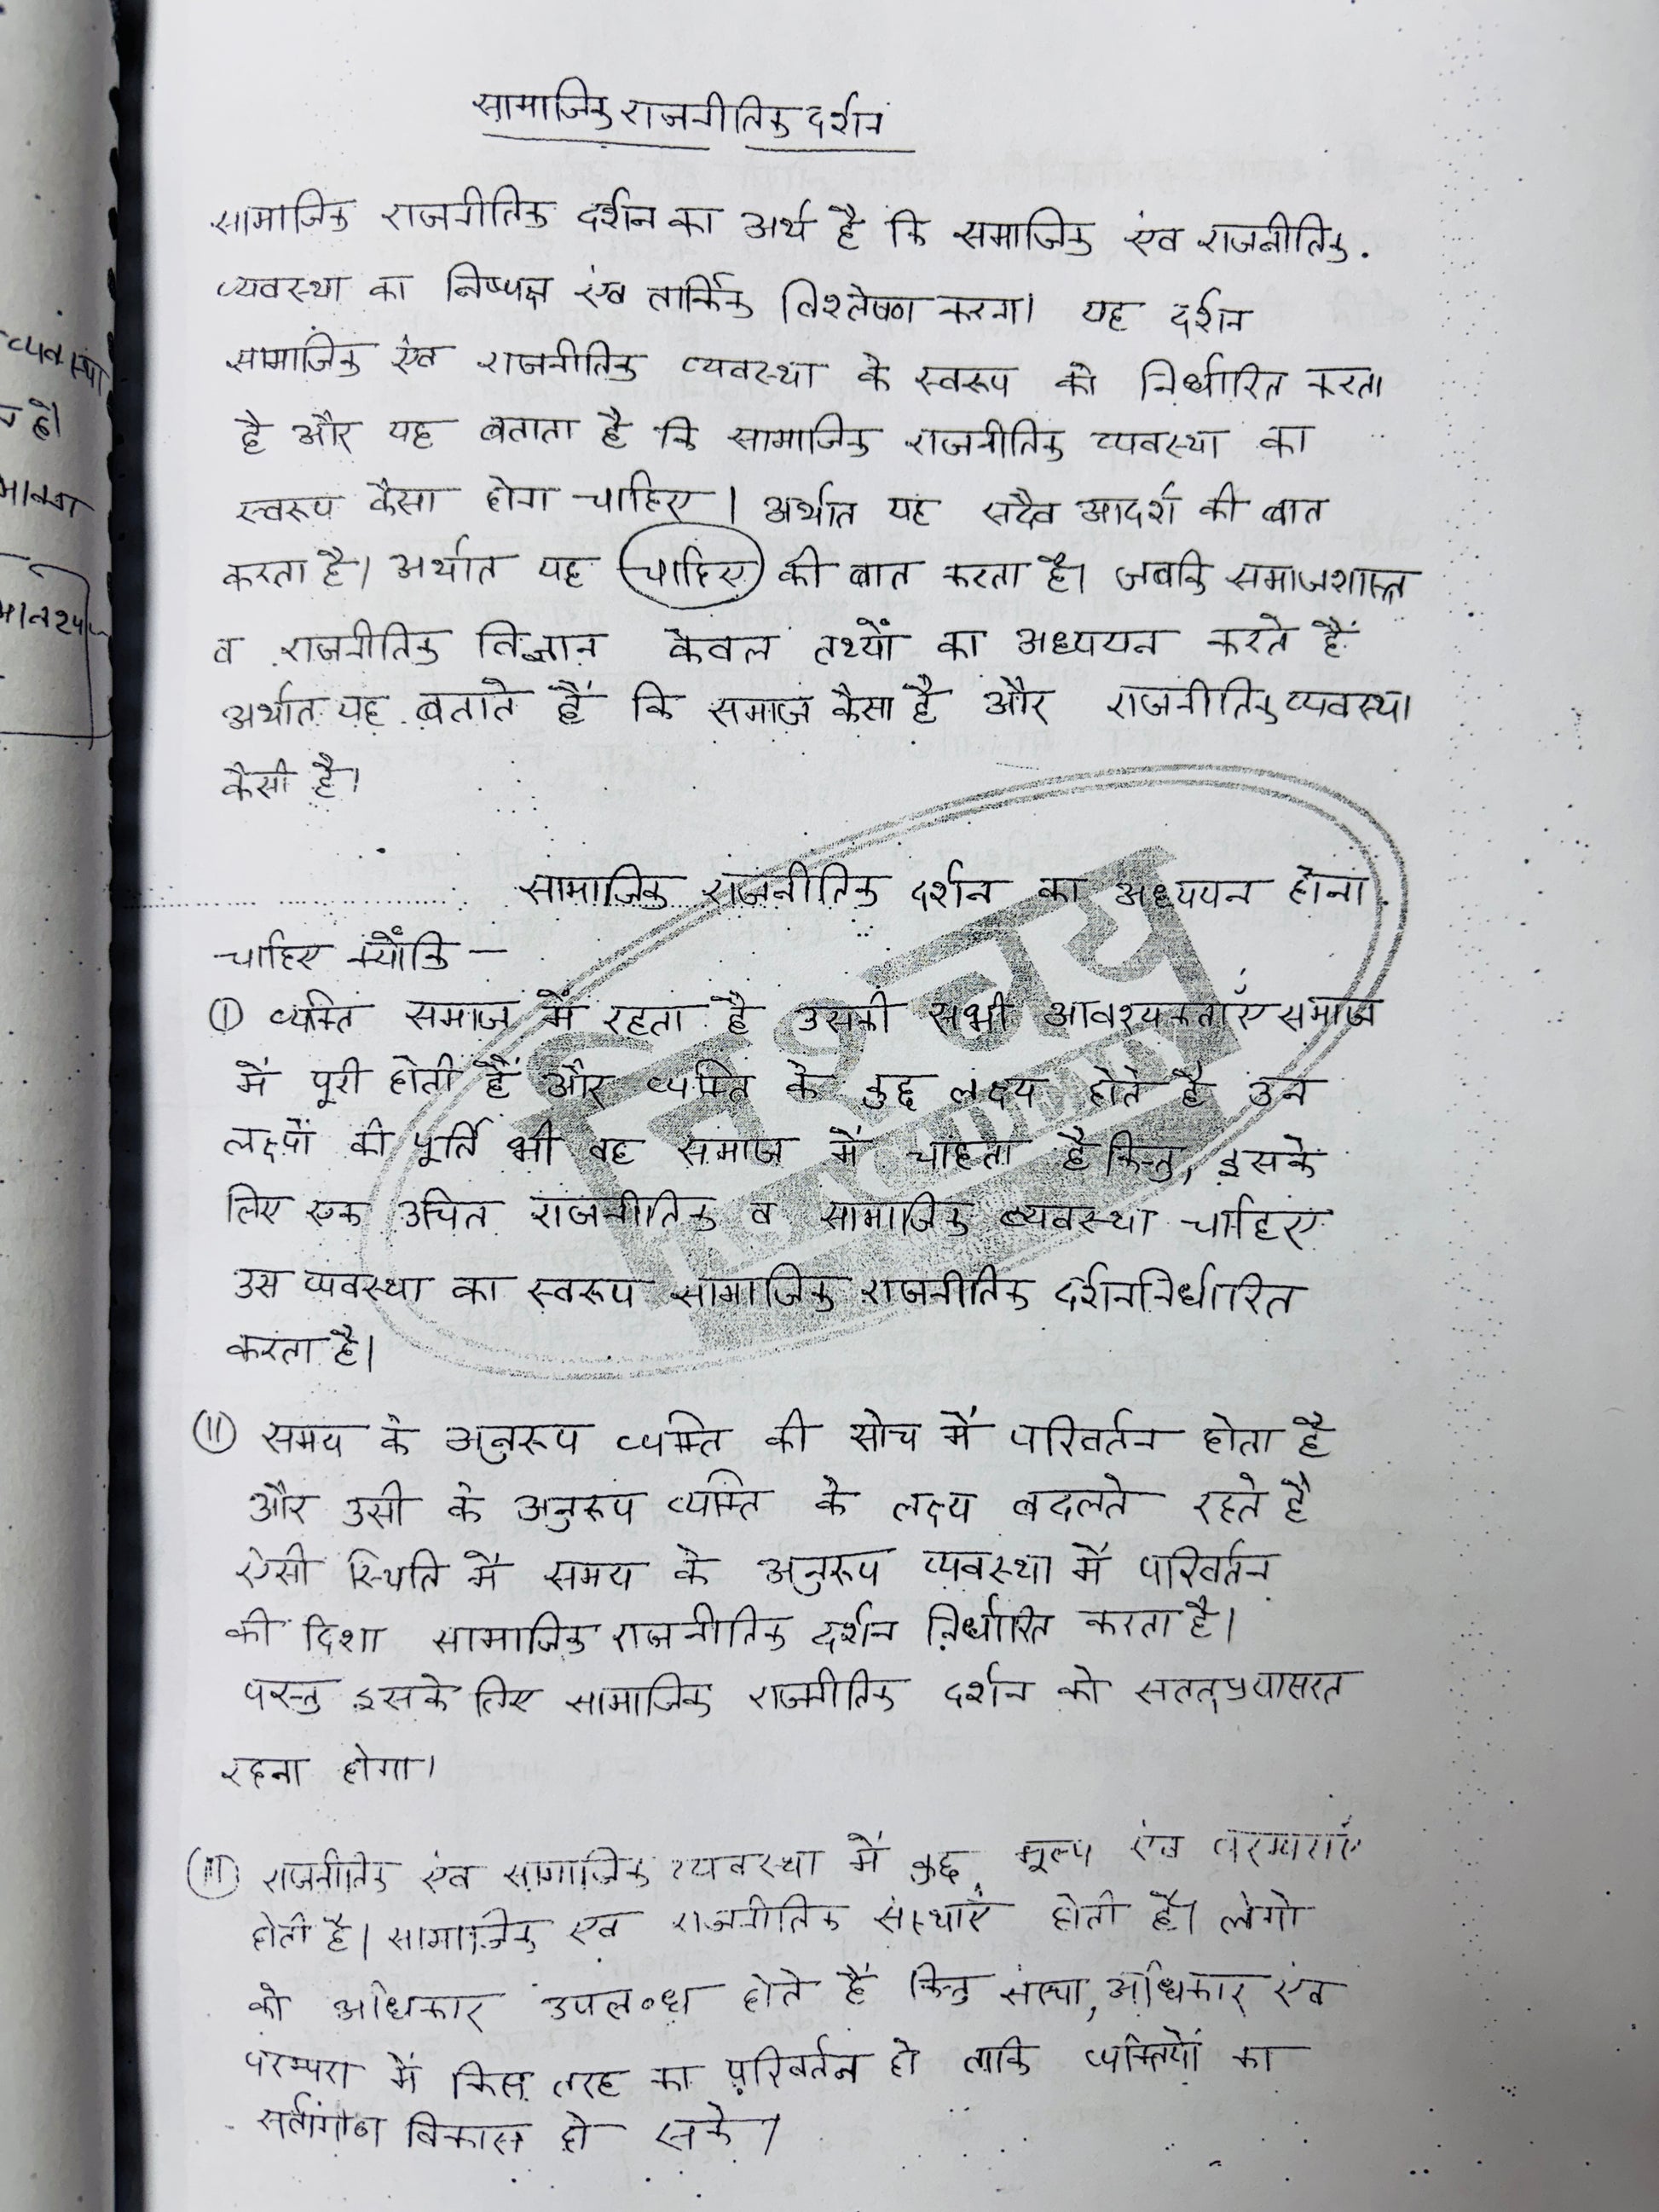 सामाजिक राजनीतिक दर्शन
सामाजिक राजनीतिक दर्शन का अर्थ है कि समाजिक एंव राजनीतिक.
व्यवस्था का निष्पक्ष एंव तार्किक विश्लेषण करना। यह दर्शन
सामाजिक एंव राजनीतिक व्यवस्था के स्वरूप को निर्धारित करता
है और यह बताता है कि सामाजिक राजनीतिक व्यवस्था का
स्वरूप कैसा होना चाहिए । अर्थात यह सदैव आदर्श की बात
करता है। अर्थात यह चाहिए की बात करता है। जबकि समाजशास्त्र
व राजनीतिक विज्ञान केवल तथ्यों का अध्ययन करते हैं
अर्थात यह बताते हैं कि समाज कैसा है और राजनीतिक व्यवस्था
कैसी है।
सामाजिक राजनीतिक दर्शन का अध्ययन होना
चाहिए क्योंकि –
(I) व्यक्ति समाज में रहता है उसकी सभी आवश्यकताएँ समाज
में पूरी होती हैं और व्यक्ति के कुछ लक्ष्य होते है उन
लक्ष्यों की पूर्ति भी वह समाज में चाहता है किन्तु, इसके
लिए एक उचित राजनीतिक व सामाजिक व्यवस्था चाहिए
उस व्यवस्था का स्वरूप सामाजिक राजनीतिक दर्शन निर्धारित
करता है।
(II) समय के अनुरूप व्यक्ति की सोच में परिवर्तन होता है
और उसी के अनुरूप व्यक्ति के लक्ष्य बदलते रहते है
ऐसी स्थिति में समय के अनुरूप व्यवस्था में परिवर्तन
की दिशा सामाजिक राजनीतिक दर्शन निर्धारित करता है।
परन्तु इसके लिए सामाजिक राजनीतिक दर्शन को सतत प्रयासरत
रहना होगा।
(III) राजनीतिक एंव सामाजिक व्यवस्था में कुछ मूल्य एंव परम्पराएं
होती है। सामाजिक एंव राजनीतिक संस्थाएं होती है। लोगो
को अधिकार उपलब्ध होते हैं किन्तु संस्था, अधिकार एंव
परम्परा में किस तरह का परिवर्तन हो ताकि व्यक्तियों का
सर्वांगीण विकास हो सके।
व्यवस्था
निश्चय